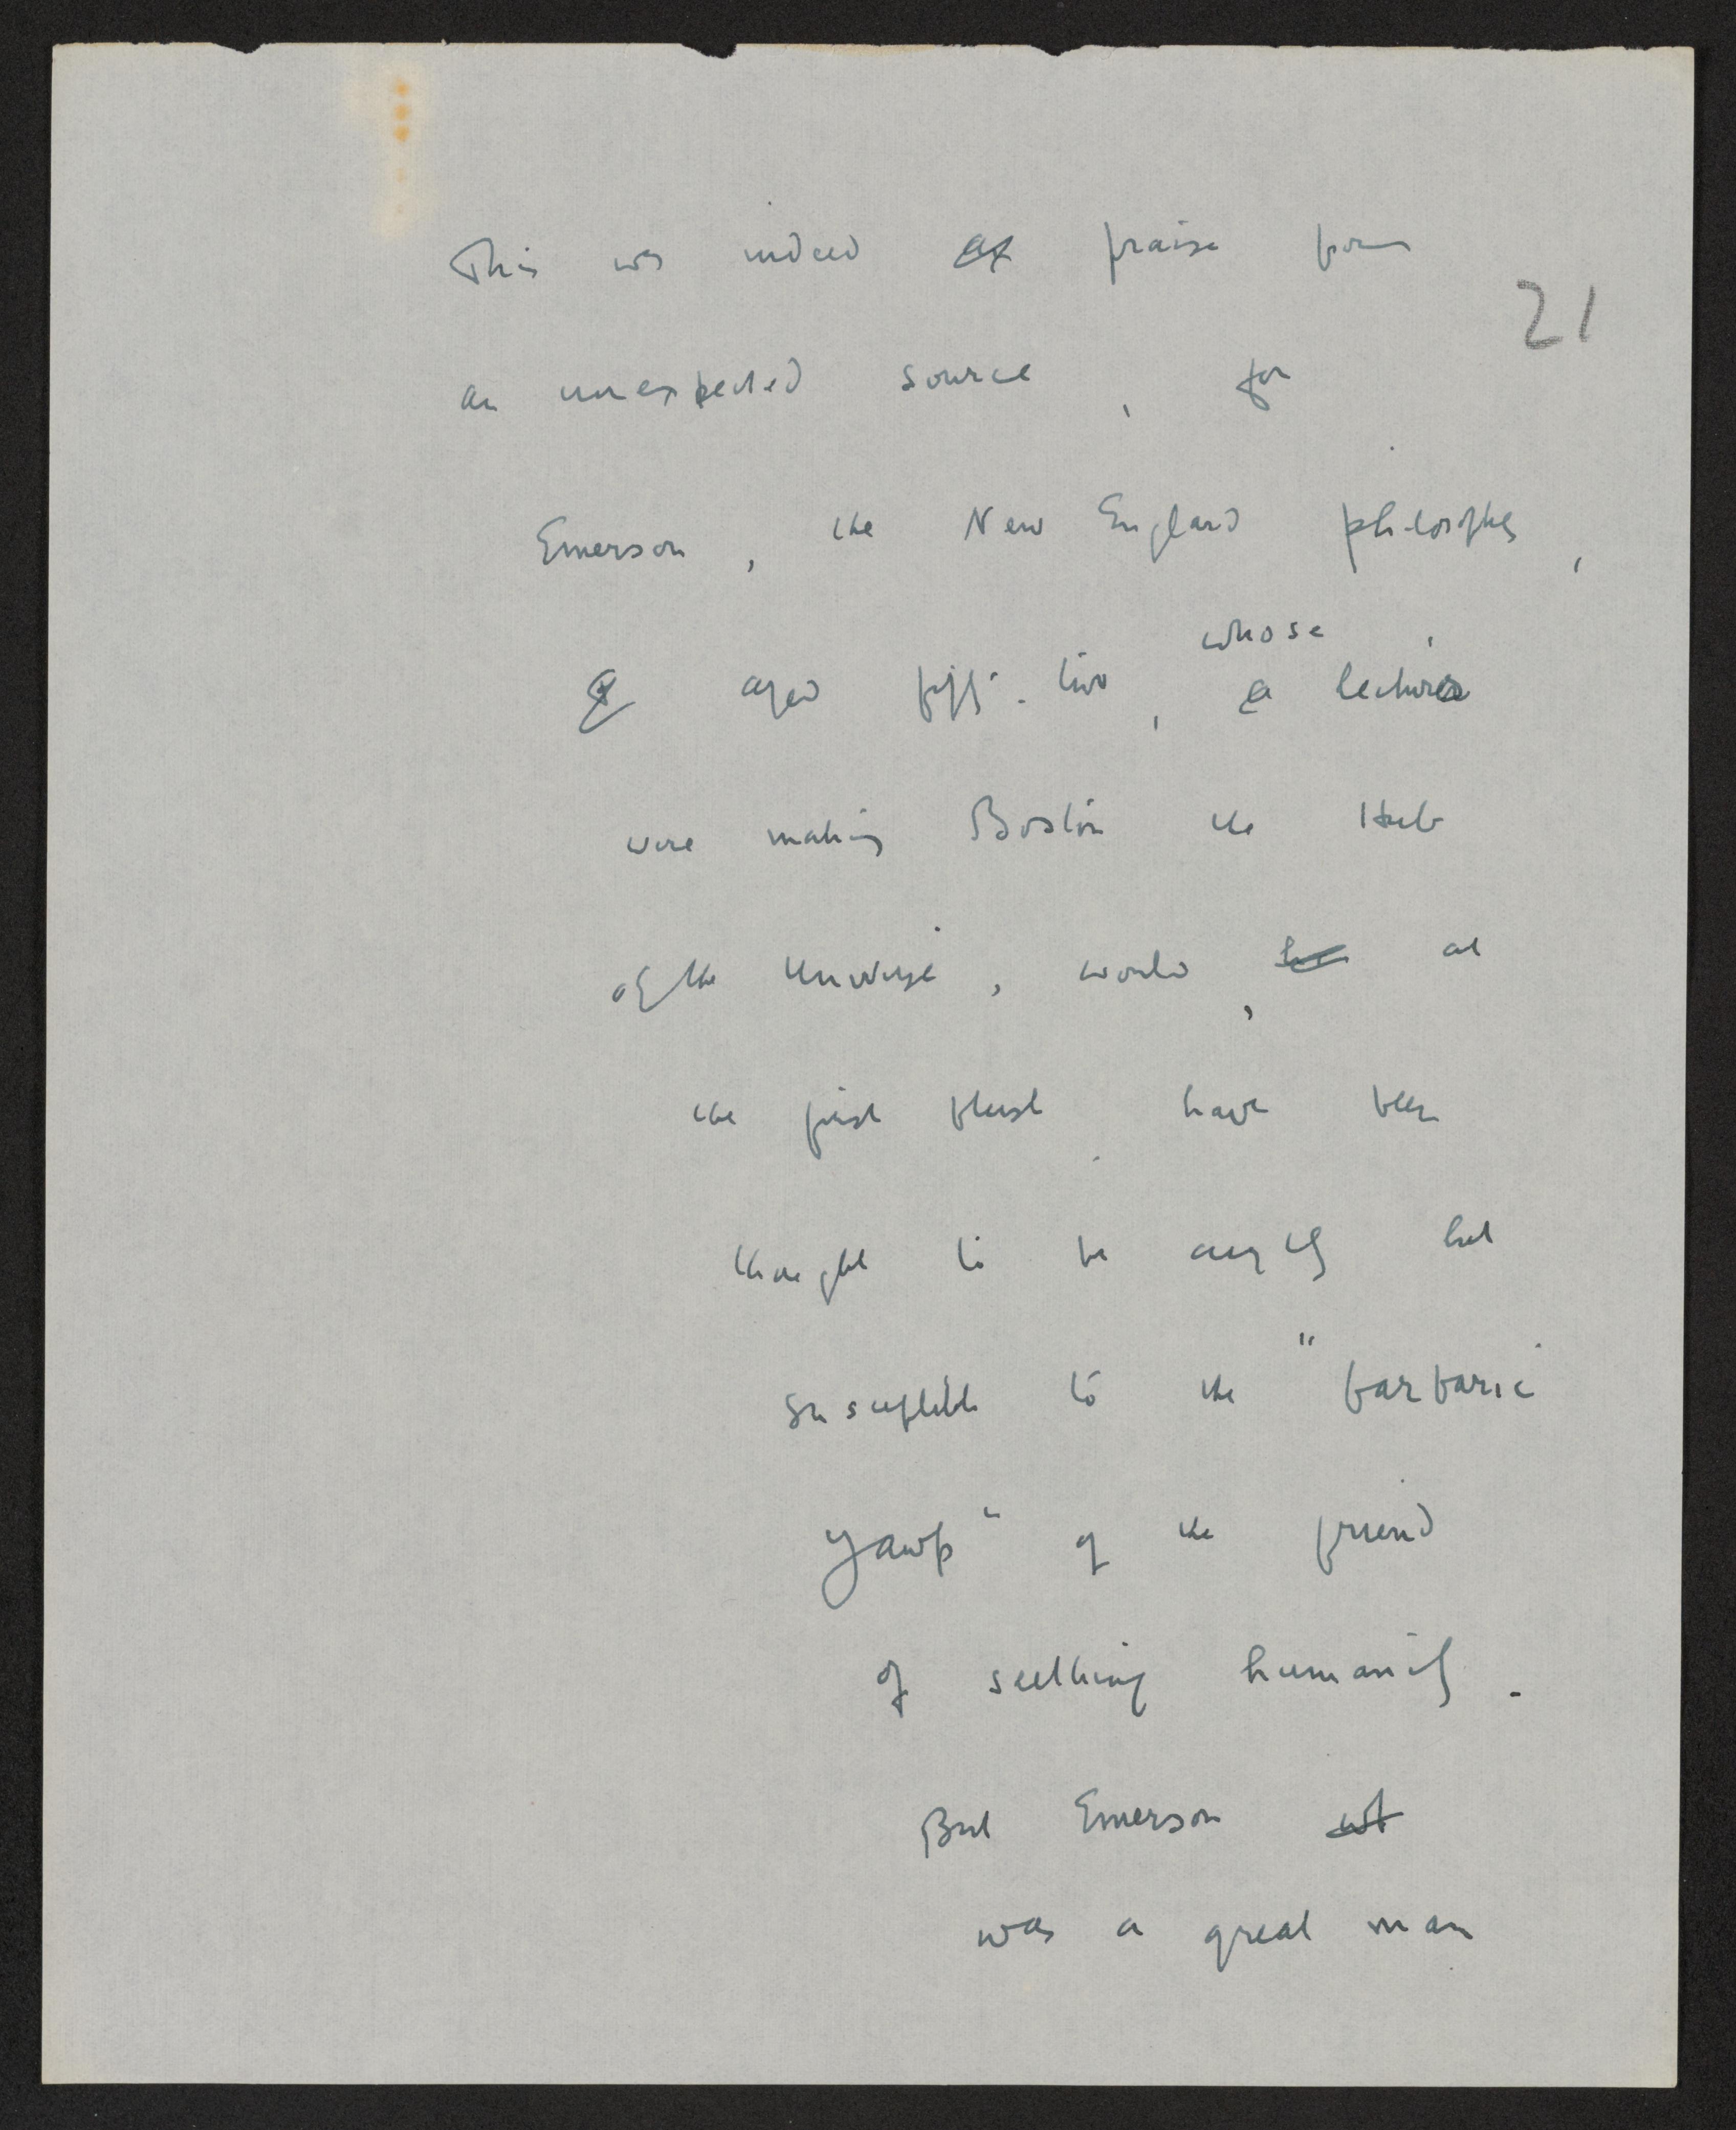 This was indeed praise from
21
an unexpected source, for
Emerson, the New England philosopher,
whose
aged fifty-two, a lectures
were making Boston the Hub
of the Universe, would, at
the first flush, have been
thought to be anything but
susceptible to the "barbaric
yawp" of the friend
of seething humanity.
But Emerson
was a great man